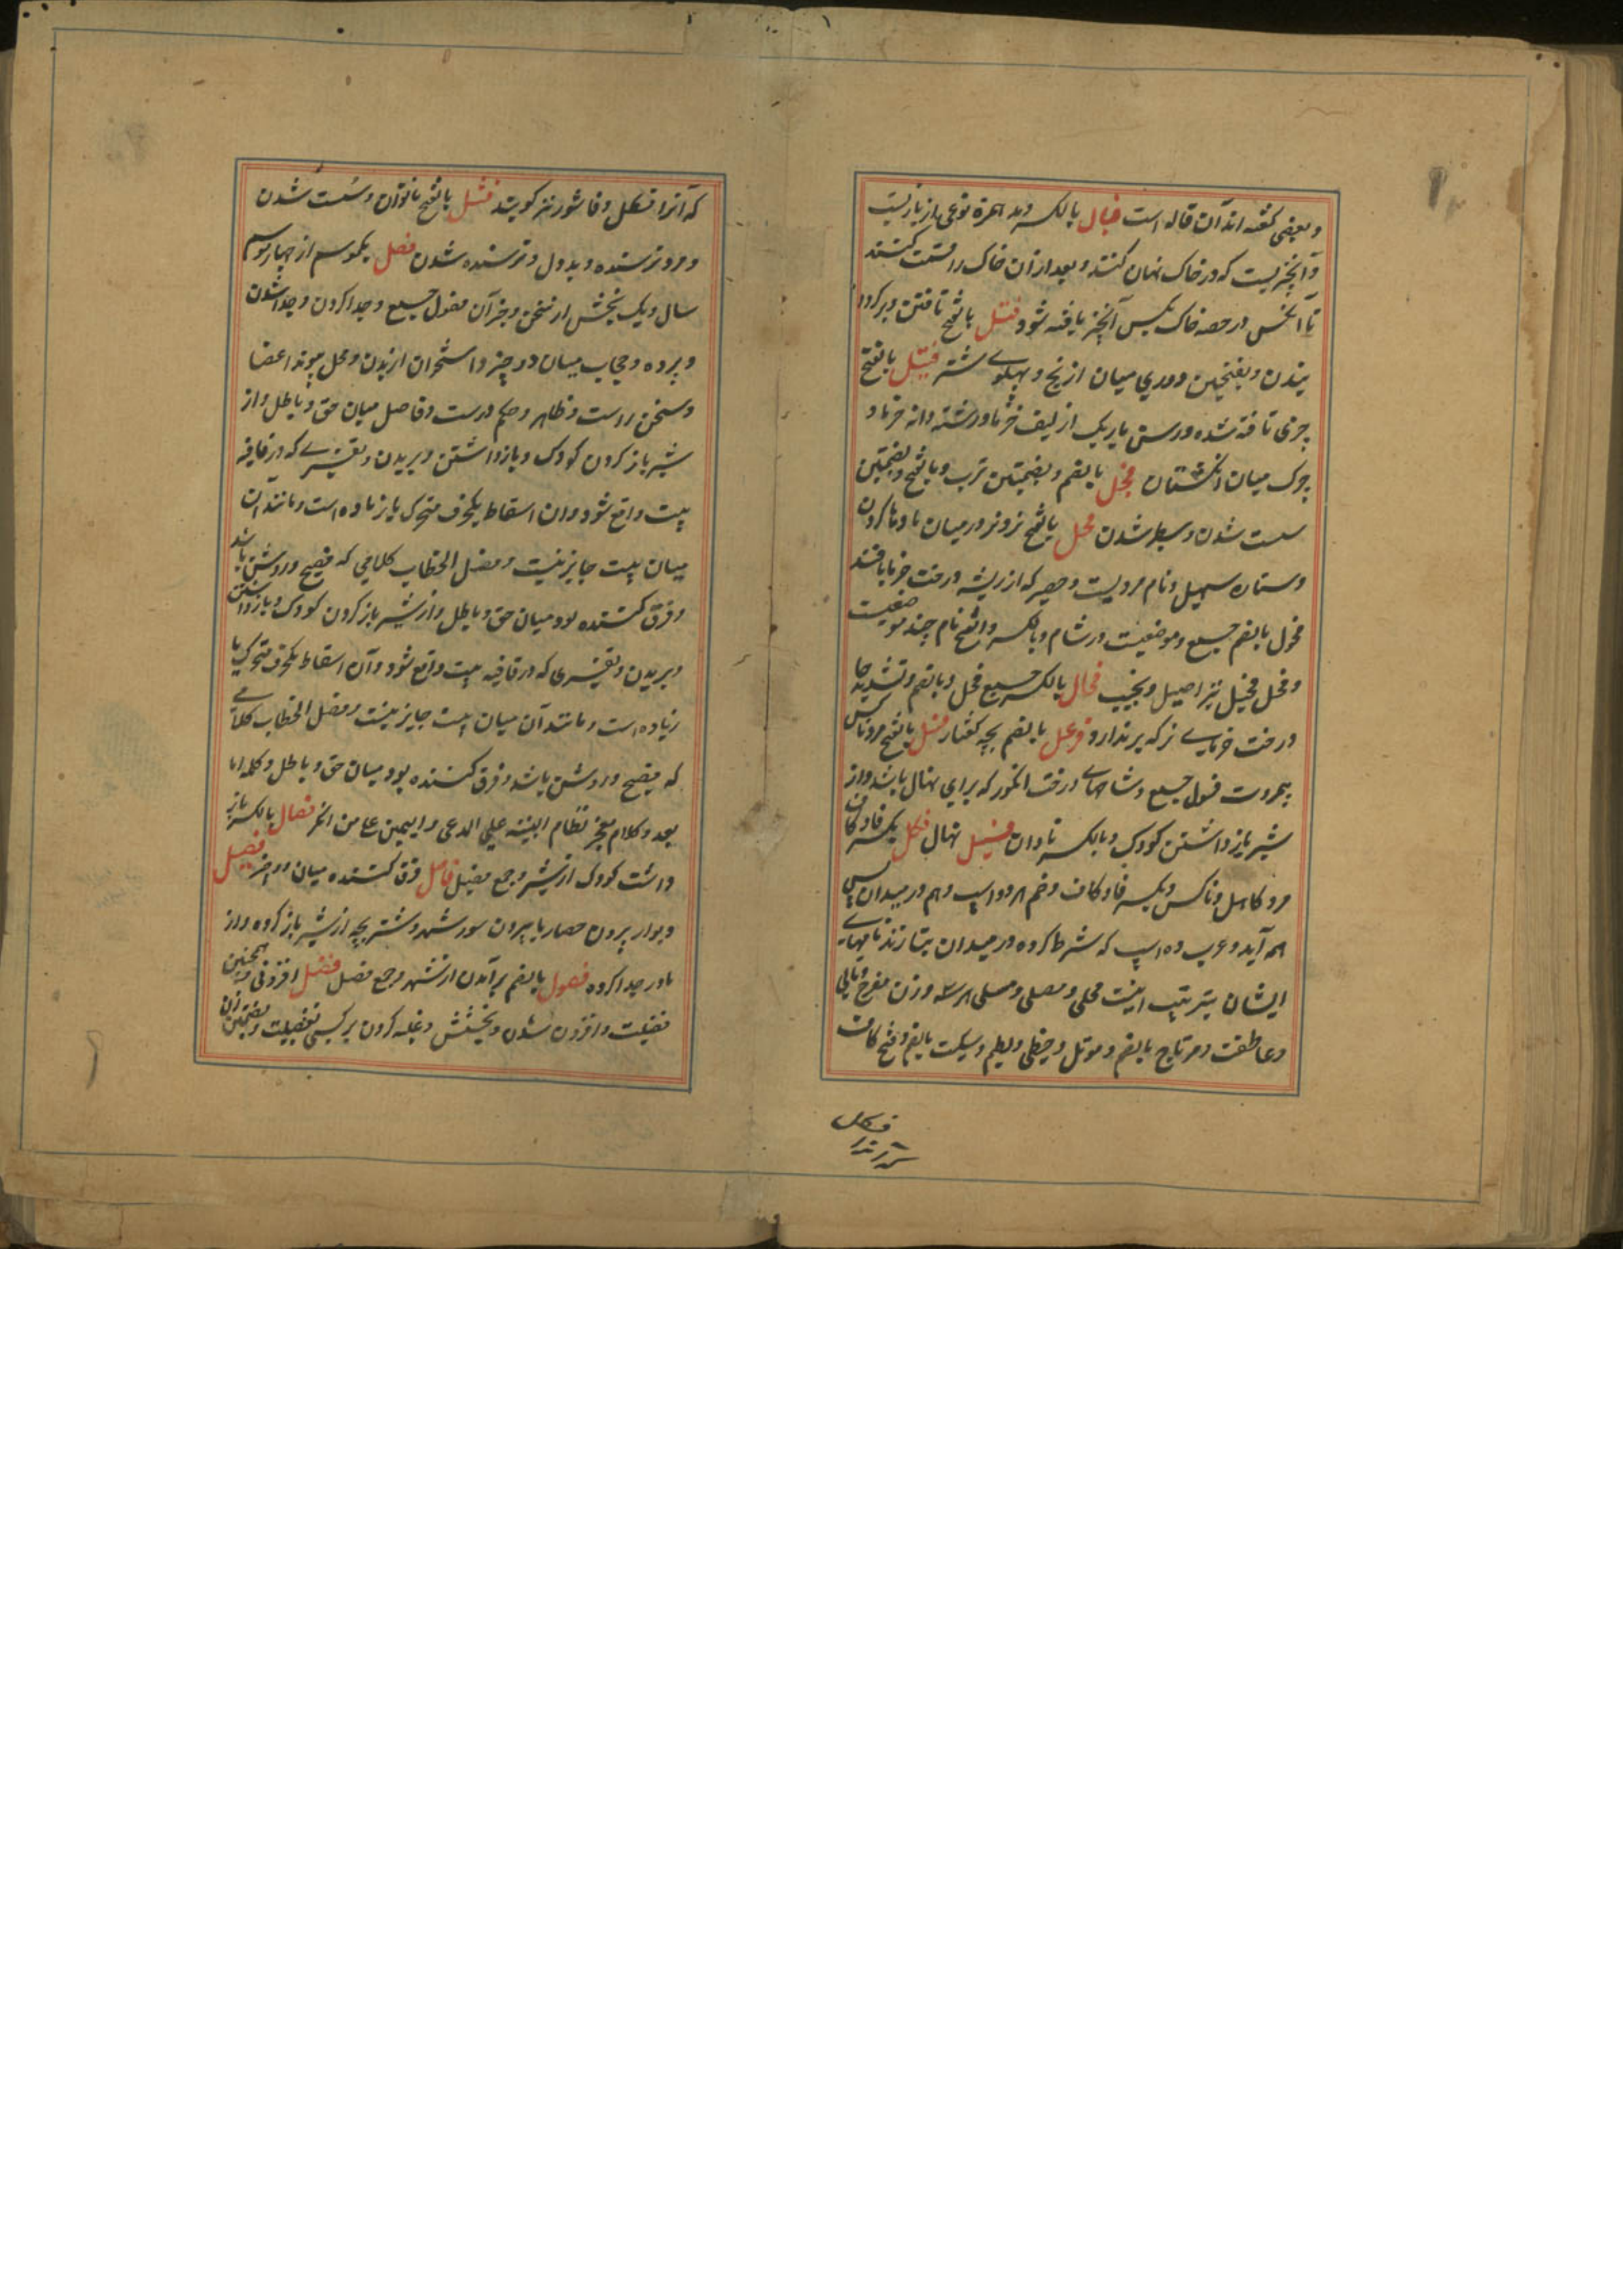 و بعضی گفته اند آن قاله است فیال بالکسر و مد همزه نوعی از بازیست
و آنچیزیست که در خاک نهان کنند و بعد از آن خاک را قسمت کنند
تا آنکس در حصه خاک یکس آنچیز یافته شود فتل بالفتح تافتن و بر
و بفتحتین دوری میان آرنج و پهلوی شتر فتیل بالفتح
چیزی تافته شده و رسن باریک از لیف خرما و رشته دانه خرما و
چرک میان انگشتان فجل بالضم و بضمتین ترب و بالفتح و بفتحتین
سست شدن و سطبر شدن فحل بالفتح نر و نر در میان ماده کردن
و ستاره سهیل و نام مردیست و حصیر که از ریشه درخت خرما بافند
فحول بالضم جمع و موضعیست در شام و بالکسر و الفتح نام چند موضعیست
و فحل فحیل نر اصیل و نجیب فحال بالکسر جمع فحل و بالضم و تشدید حا
درخت خرمای نر که بر ندارد فرعل بالضم بچه کفتار فسل بالفتح مرد ناکس
بیمروت فسول جمع و شاخهای درخت انگور که برای نهال باشد و از
شیر باز داشتن کودک و بالکسر نادان فسیل نهال فسکل بکسر فا و کاف
مرد کاهل و ناکس و بکسر فا و کاف و ضم هر دو اسپ دهم در میدان پس
همه آید و عرب ده اسپ که شرط کرده در میدان بتازند نامهای
ایشان بترتیب اینست مجلی و مصلی و مسلی هر سه وزن مفرح و تالی
و عاطف و مرتاح بالضم و مؤمل و حظی و لطیم و سکیت بالضم و فتح کاف
فسکل
که آنرا فسکل و قاشور نیز گویند فشل بالفتح ناتوان و سست شدن
و مرد ترسنده و بددل و ترسنده شدن فصل یکموسم از چهار موسم
سال و یک بخش از سخن و جز آن فصول جمع و جدا کردن و جدا شدن
و پرده و حجاب میان دو چیز و استخوان از بدن و محل پیوند اعضا
و سخن راست و ظاهر و حکم درست و فاصل میان حق و باطل و از
شیر باز کردن کودک و باز داشتن و بریدن و تغییری که در قافیه
بیت واقع شود و آن اسقاط یکحرف متحرک یا زیاده است و مانند آن
میان بیت جایز نیست و فصل الخطاب کلامی که فصیح و روشن باشد
و فرق کننده بود میان حق و باطل و از شیر باز کردن کودک و باز داشتن
و بریدن و تغییری که در قافیه بیت واقع شود و آن اسقاط یکحرف متحرک یا
زیاده است و مانند آن میان بیت جایز نیست و فصل الخطاب کلامی
که فصیح و روشن باشد و فرق کننده بود میان حق و باطل و کلمه اما
بعد و کلام معجز نظام البینة علی المدعی و الیمین علی من انکر فصال بالکسر باز
داشت کودک از شیر و جمع فصیل فاصل فرق کننده میان دو چیز فصیل
دیوار برون حصار یا بیرون سور شهر و شتر بچه از شیر باز کرده و از
مادر جدا کرده فصول بالضم برآمدن از شهر و جمع فصل فضل افزونی و همچنین
فضیلت و افزون شدن و بخشش و غلبه کردن بر کسی بفضیلت و بضمتین زن